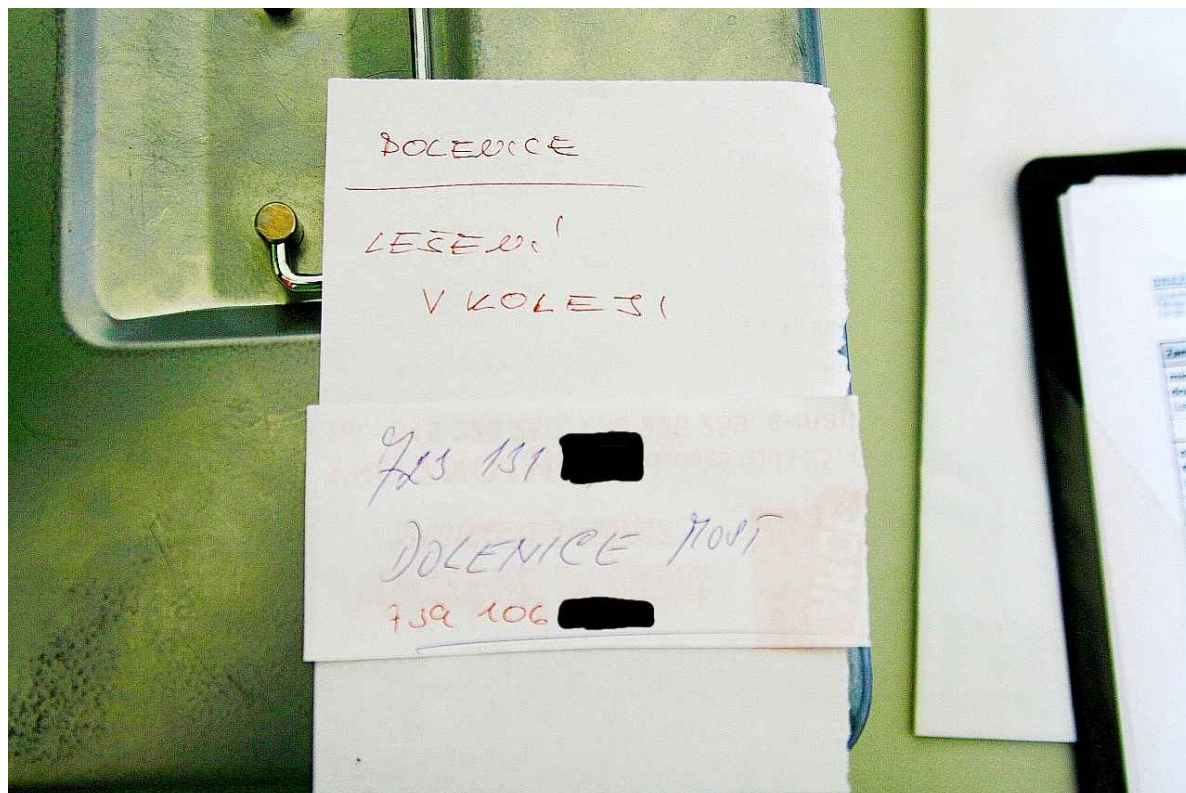 DOLENICE
LEŠENÍ
V KOLEJI
723 131
DOLENICE MOST
739 106